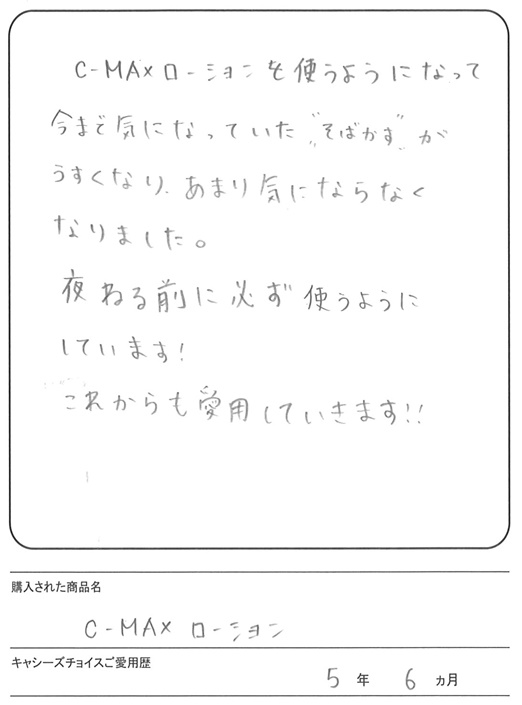 C-MAXローションを使うようになって
今まで気になっていた“そばかす”が
うすくなり、あまり気にならなく
なりました。
夜ねる前に必ず使うように
しています!
これからも愛用していきます!!
購入された商品名
C-MAX ローション
キャシーズチョイスご愛用歴
5年 6ヵ月